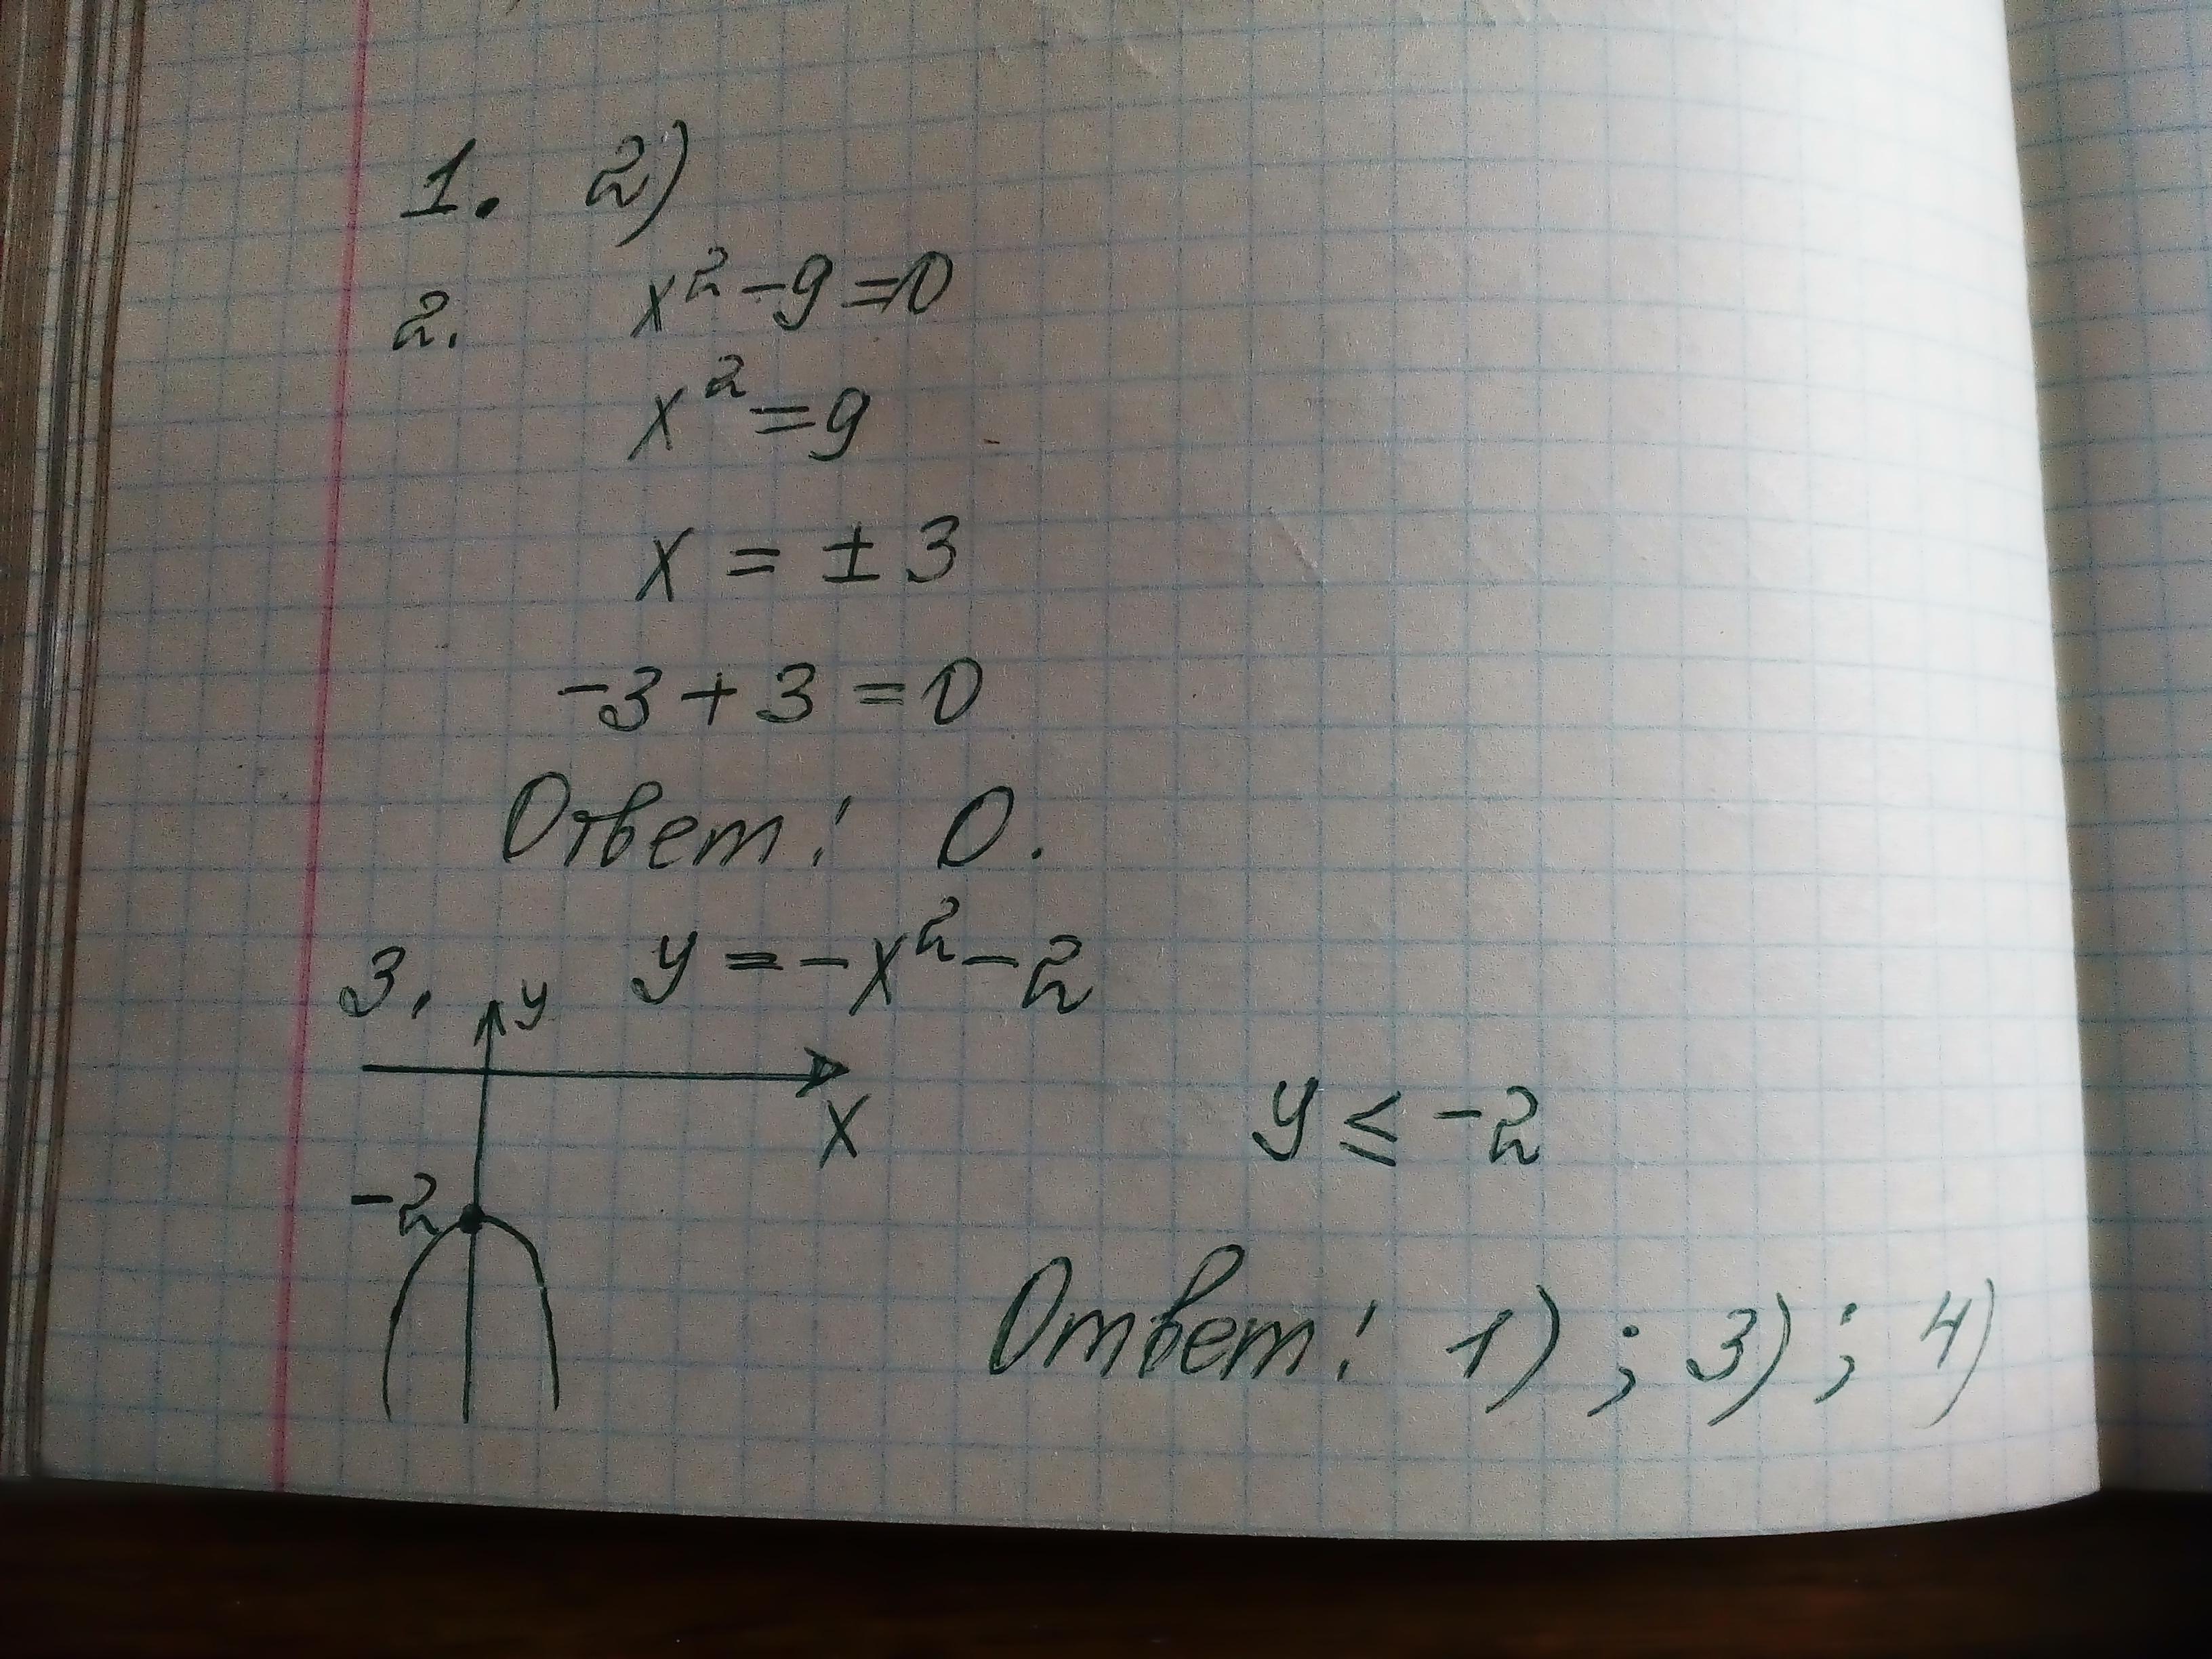 1. 2)
2. x² - 9 = 0
x² = 9
x = ± 3
-3 + 3 = 0
Ответ: 0.
3. y = -x² - 2
y
x
y ≤ -2
-2
Ответ: 1) ; 3) ; 4)